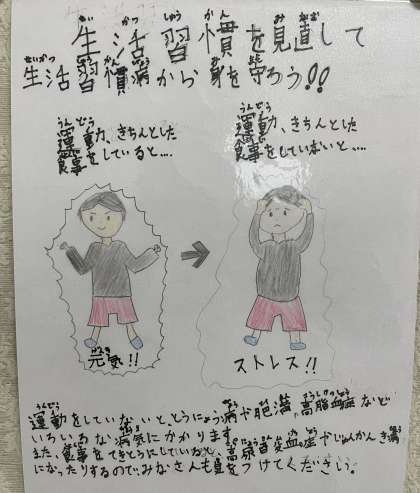 生活習慣を見直して
生活習慣病から身を守ろう!!
運動、きちんとした
食事をしていると....
運動、きちんとした
食事をしていないと....
元気!!
ストレス!!
運動をしていないと、とうにょう病や肥満、高脂血症など
いろいろな病気にかかります。
また、食事をてきとうにしていると、高尿酸血症やじゅんかんき病
になったりするのでみなさんも気をつけてください。